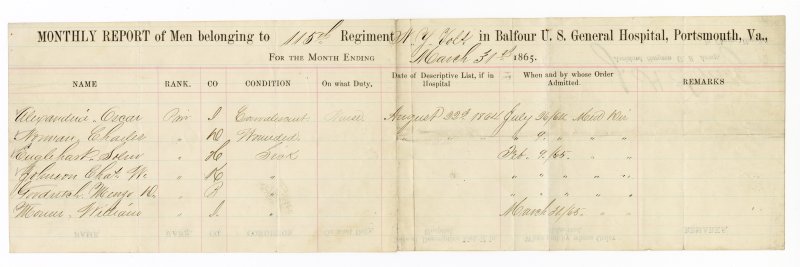 MONTHLY REPORT of Men belonging to 115th Regiment N. Y. Vols. in Balfour U. S. General Hospital, Portsmouth, Va.,
FOR THE MONTH ENDING March 31st 1865.
NAME RANK. CO CONDITION On what Duty, Date of Descriptive List, if in Hospital When and by whose Order Admitted. REMARKS
Alexandria Oscar Priv I Convalescent Nurse August 22d 1864 July 26/64 Med Dir
Norman, Charles " K Wounded " " " " 9 " " "
Englehart John " H Sick Feb. 9/65 " "
Johnson Chas. W. " K " " " " "
Goodrich Mengo D. " B " " " " "
William " I " March 21/65 " "